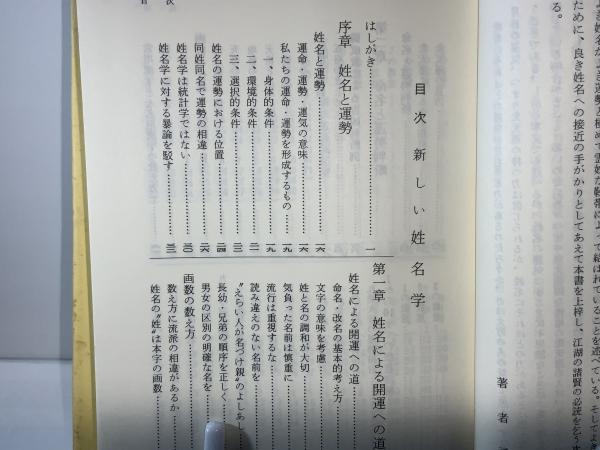 よき姓名がよき運勢と極めて霊妙な靱帯によって結ばれていることを述べている。そしてよき
ために、良き姓名への接近の手がかりとしてあえて本書を上梓し、江湖の諸賢の必読を乞うま
る。
著者
目次 新しい姓名学
はしがき……一
序章 姓名と運勢
姓名と運勢……一六
運命・運勢・運気の意味……一六
私たちの運命・運勢を形成するもの……一九
一、身体的条件……一九
二、環境的条件……二一
三、選択的条件……二三
姓名の運勢における位置……二四
同姓同名で運勢の相違……二六
姓名学は統計学ではない……三〇
姓名学に対する暴論を駁す……三三
第一章 姓名による開運への道
姓名による開運への道……
命名・改名の基本的考え方
文字の意味を考慮……
姓と名の調和が大切……
気負った名前は慎重に……
流行は重視するな……
読み違えのない名前を……
〝えらい人が名づけ親〟のよしあし
長幼・兄弟の順序を正しく……
男女の区別の明確な名を……
画数の数え方……
数え方に流派の相違があるか……
姓名の〝姓〟は本字の画数……
次